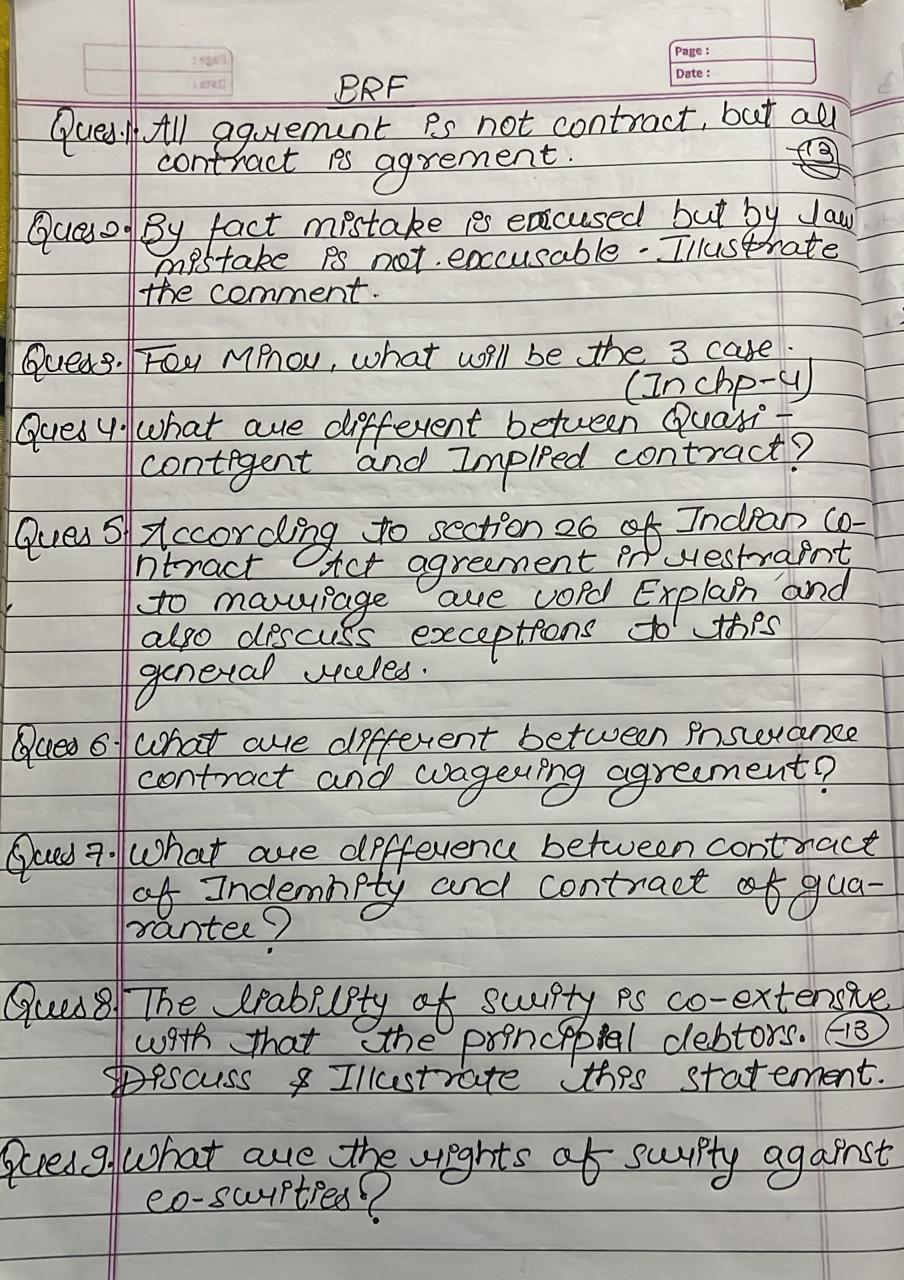 Page :
Date :
BRF
Ques.1. All aguement is not contract, but all
contract is agrement. -(13)
Ques 2. By fact mistake is excused but by law
mistake is not excusable - Illustrate
the comment.
Ques 3. For Minor, what will be the 3 case.
(In chp-4)
Ques 4. what are different between Quasi -
contigent and Implied contract?
Ques 5. According to section 26 of Indian Co-
ntract Act agreement in restraint
to marriage are void Explain and
also discuss exceptions to this
general rules.
Ques 6. What are different between insurance
contract and wagering agreement?
Ques 7. What are difference between contract
of Indemnity and contract of gua-
rantee?
Ques 8. The liability of surity is co-extensive
with that the principial debtors. (-13)
Discuss & Illustrate this statement.
Ques 9. What are the rights of surity against
co-surities?